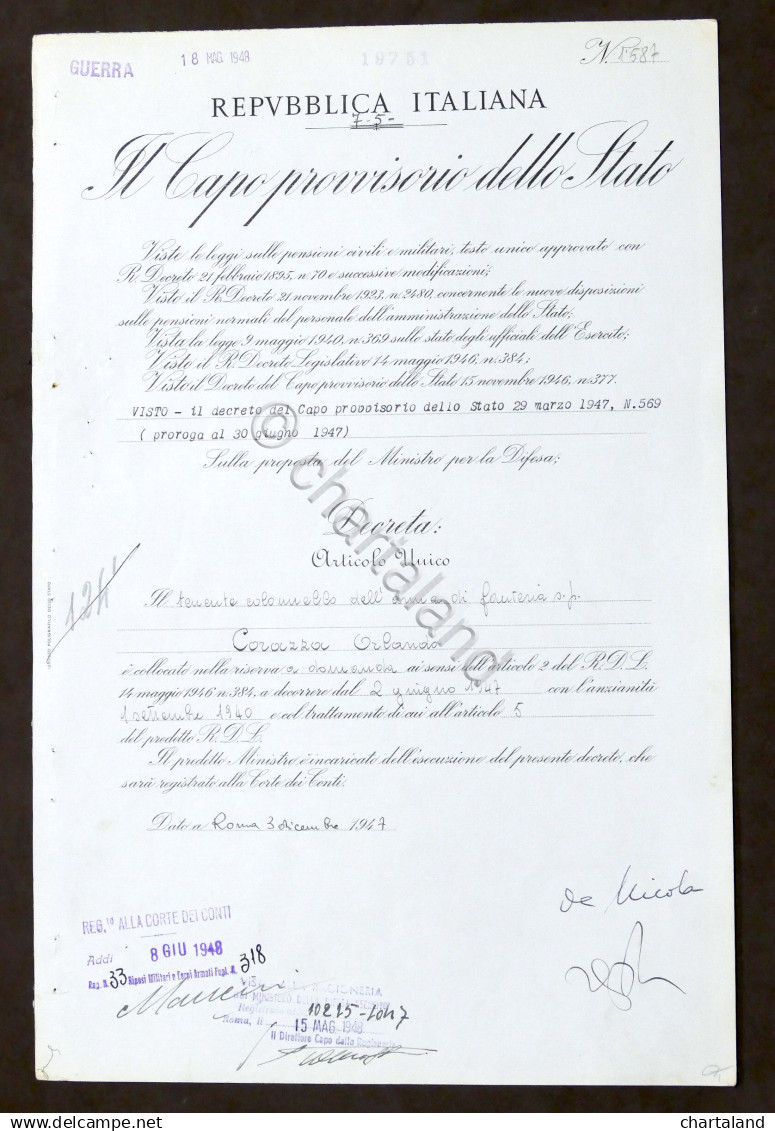 GUERRA
18 MAG 1948
19751
N. 1587
REPVBBLICA ITALIANA
7-5-
Il Capo provvisorio dello Stato
Viste le leggi sulle pensioni civili e militari, testo unico approvato con
R. Decreto 21 febbraio 1895, n. 70 e successive modificazioni;
Visto il R. Decreto 21 novembre 1923, n. 2480, concernente le nuove disposizioni
sulle pensioni normali del personale dell'amministrazione dello Stato;
Vista la legge 9 maggio 1940, n. 369 sullo stato degli ufficiali dell'Esercito;
Visto il R. Decreto Legislativo 14 maggio 1946, n. 384;
Visto il Decreto del Capo provvisorio dello Stato 15 novembre 1946, n. 377.
VISTO - il decreto del Capo provvisorio dello Stato 29 marzo 1947, N.569
( proroga al 30 giugno 1947)
Sulla proposta del Ministro per la Difesa;
Decreta:
Articolo Unico
Il tenente colonnello dell'arma di fanteria s.p.
Corazza Orlando
è collocato nella riserva a domanda ai sensi dell'articolo 2 del R.D.L.
14 maggio 1946 n. 384, a decorrere dal 2 giugno 1947 con l'anzianità
1 settembre 1940 e col trattamento di cui all'articolo 5
del predetto R.D.L.
Il predetto Ministro è incaricato dell'esecuzione del presente decreto, che
sarà registrato alla Corte dei Conti.
Dato a Roma 3 dicembre 1947
De Nicola
REG.to ALLA CORTE DEI CONTI
Addì 8 GIU 1948
Reg. N. 33 Riposi Militari e Corpi Armati Fogl. N. 318
RAGIONERIA
10215-1047
Roma, lì 15 MAG 1948
Il Direttore Capo della Ragioneria
© chartaland
chartaland